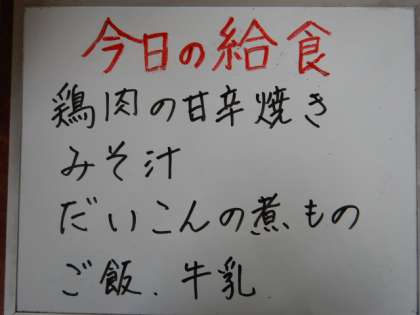 今日の給食
鶏肉の甘辛焼き
みそ汁
だいこんの煮もの
ご飯、牛乳